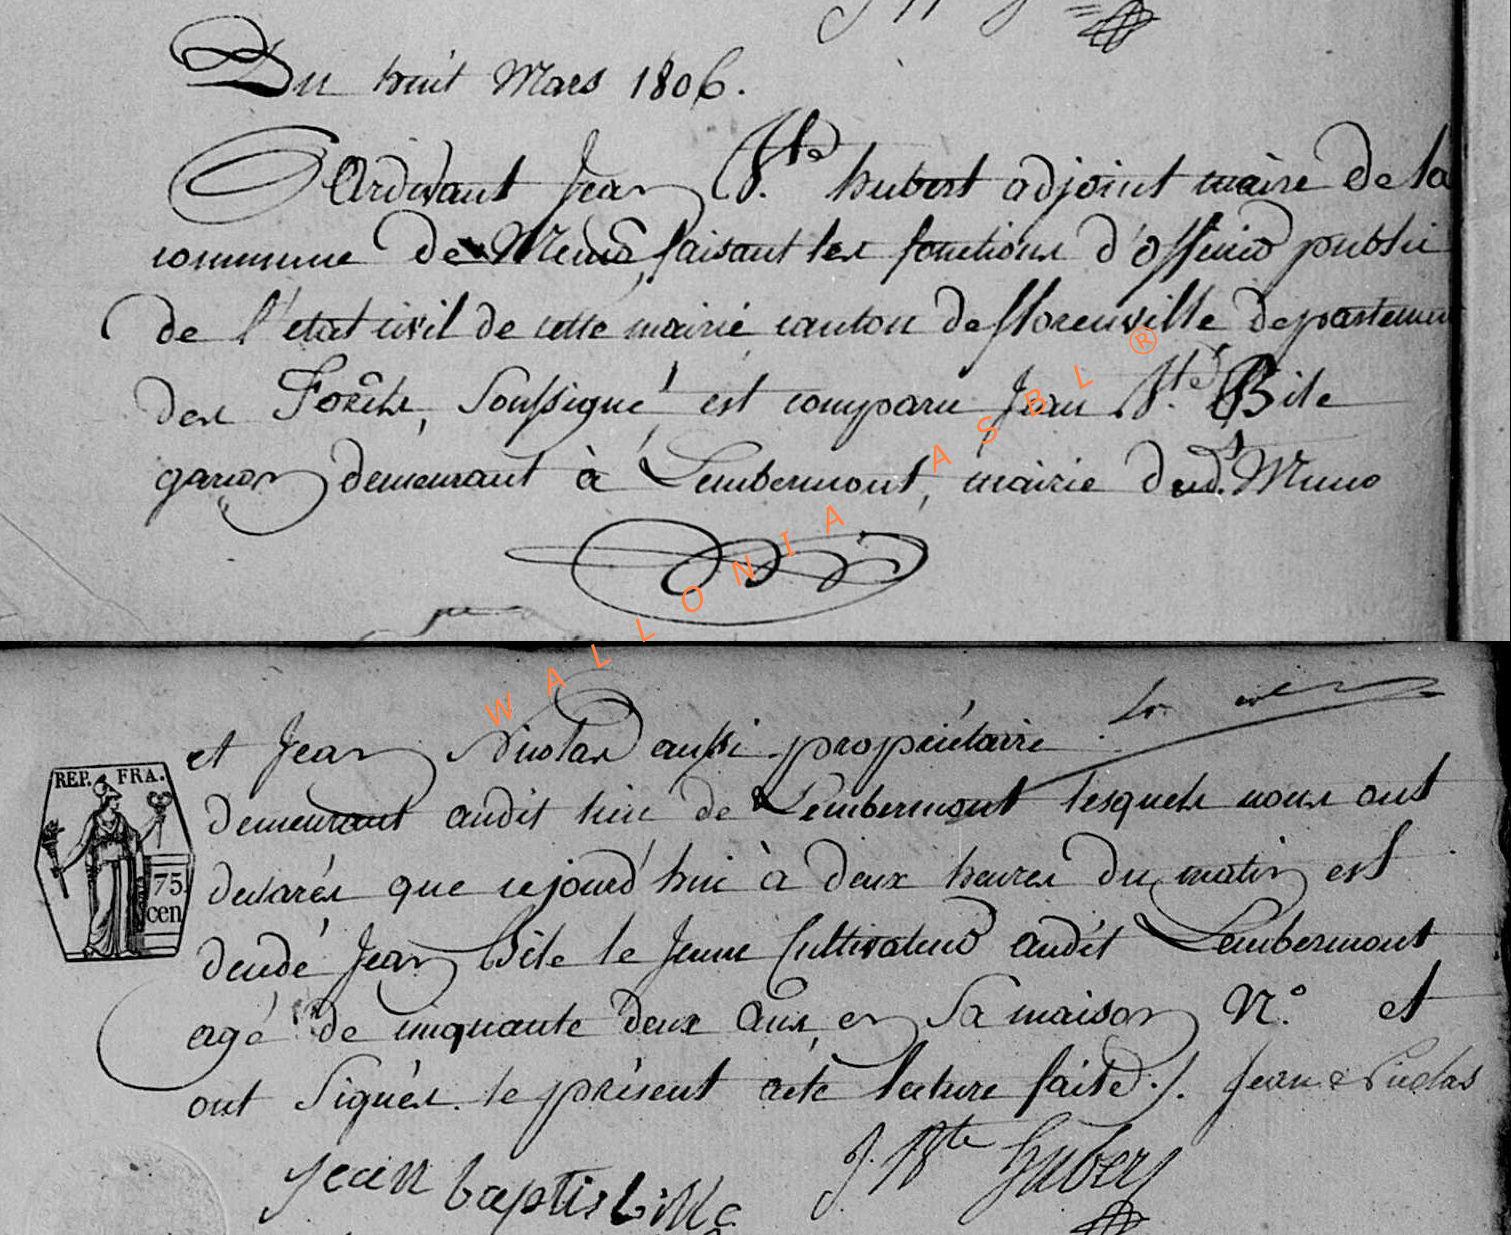 Du huit Mars 1806.
Pardevant Jean Bte. hubert adjoint maire de la
commune de Muno, faisant les fonctions d'officier public
de l'état civil de cette mairie canton de florenville departement
des Forêts, Soussigné, est comparu Jean Bte. Bile
garcon demeurant à Lembermont, mairie dud.t Muno
WALLONIA ASBL ®
et Jean Nicolas aussi propriétaire
demeurant audit lieu de Lembermont lesquels nous ont
declarés que cejourd'hui à deux heures du matin est
decedé Jean Bile le Jeune Cultivateur audit Lembermont
agé de cinquante deux ans, en Sa maison N.° et
ont Signés le présent acte lecture faite ./. Jean Nicolas
jean baptis bille
J. Bte hubert
REP. FRA.
75
cen